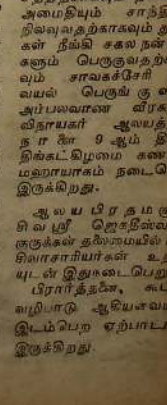 அமைதியும் சாந்தி
நிலவுவதற்காகவும்
கள் நீங்கி சகல நன்
களும் பெருகுவதற்
வும் சாவகச்சேரி
வயல் பெருங்கு
அம்பலவாண வீரக
விநாயகர் ஆலயத்
நாளை 9 ஆம் தி
திங்கட்கிழமை கண
மஹாயாகம் நடைபெ
இருக்கிறது.
ஆலய பிரதம கு
சிவஸ்ரீ ஜெகதீஸ்வ
குருக்கள் தலைமையில்
சிவாசாரியர்கள் உ
யுடன் இதுநடைபெறு
பிரார்த்தனை, கூட
வழிபாடு ஆகியனவ
இடம்பெற ஏற்பாடா
இருக்கிறது.